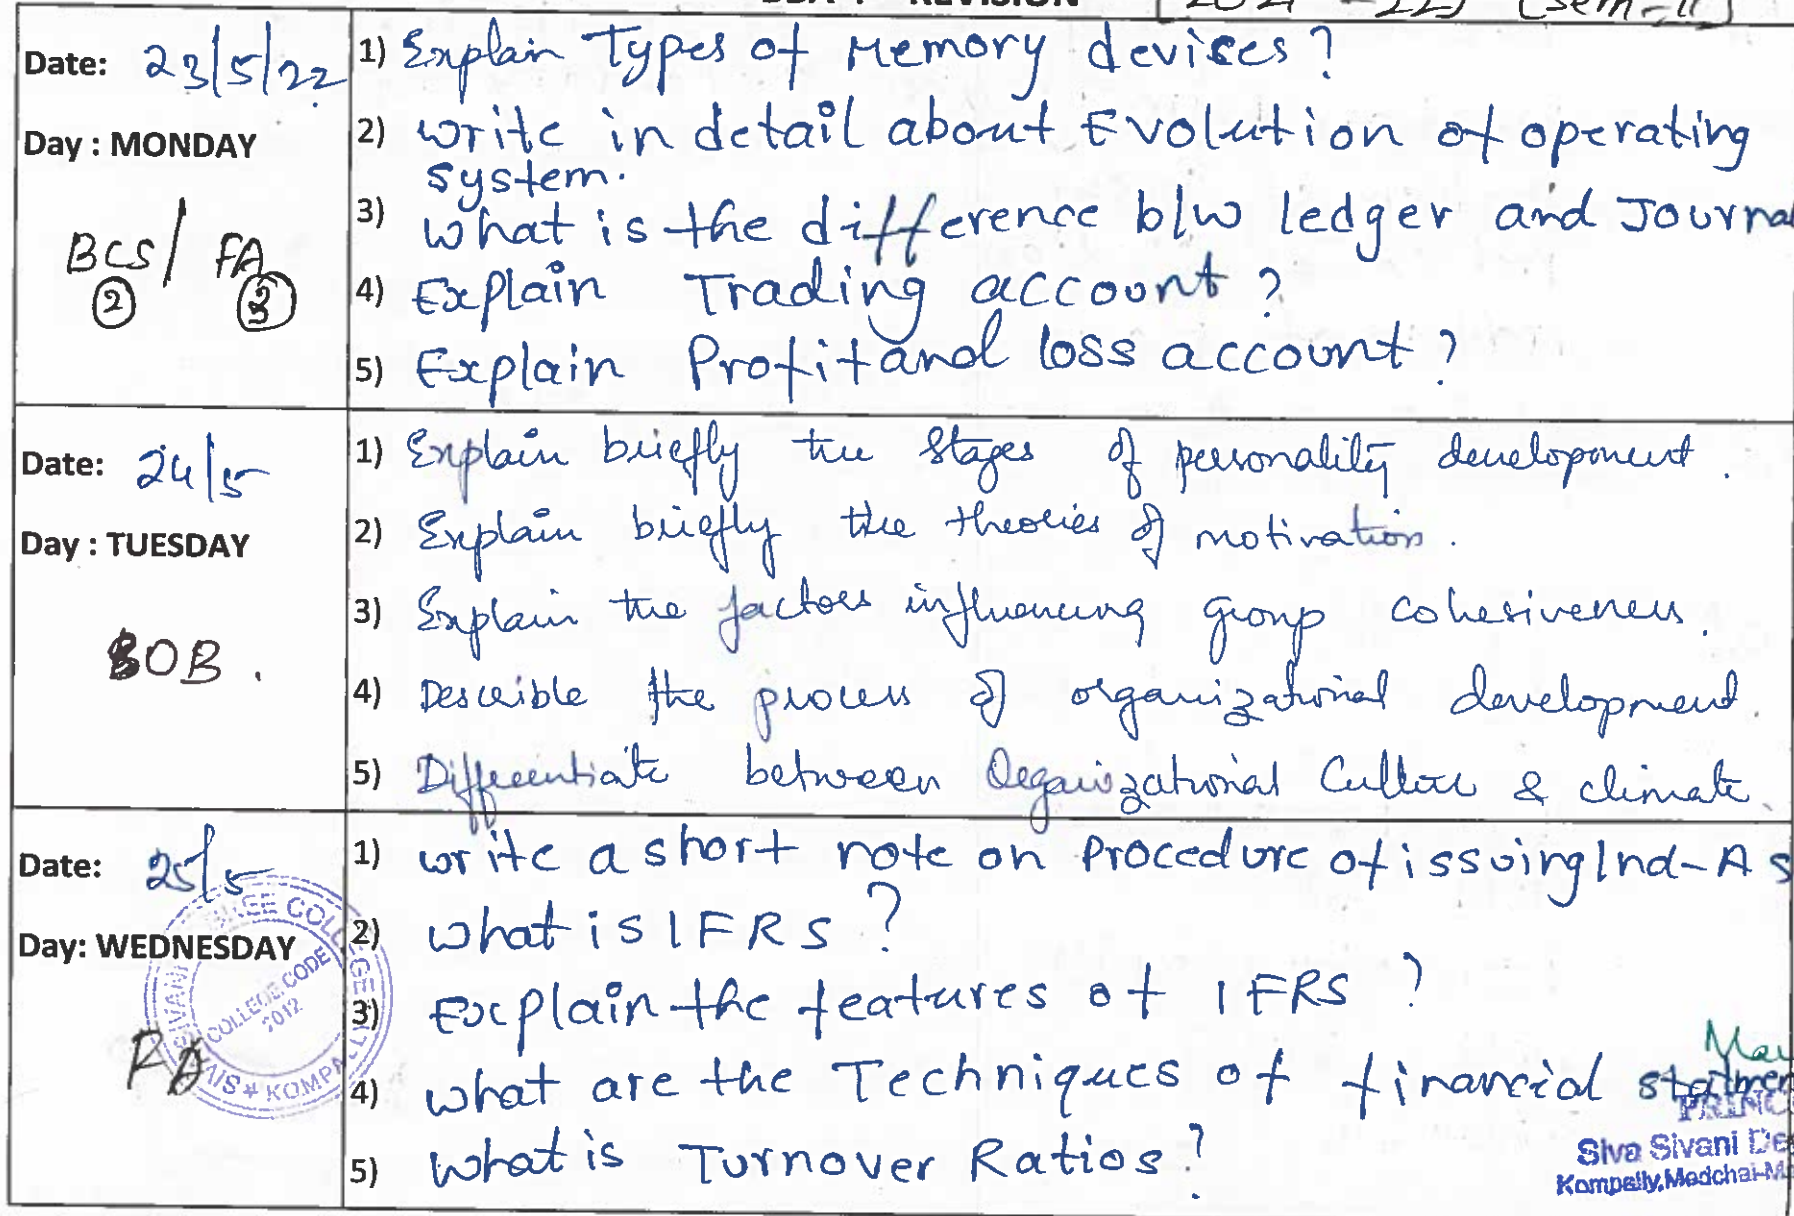 REVISION (sem-II)
Date: 23/5/22
Day : MONDAY
BCS / FA
2 3
1) Explain Types of Memory devices?
2) write in detail about Evolution of operating
system.
3) what is the difference b/w ledger and Journal
4) Explain Trading account?
5) Explain Profit and loss account?
Date: 24/5
Day : TUESDAY
OB.
1) Explain briefly the stages of personality development.
2) Explain briefly the theories of motivation.
3) Explain the factors influencing group cohesiveness.
4) Describle the process of organizational development.
5) Differentiate between Organizational Culture & climate.
Date: 25/5
Day: WEDNESDAY
FA
COLLEGE CODE
2012
1) write a short note on Procedure of issuing Ind-AS
2) what is IFRS?
3) Explain the features of IFRS?
4) what are the Techniques of financial statmen
5) what is Turnover Ratios?
PRINC
Siva Sivani De
Kompally, Medchal-M